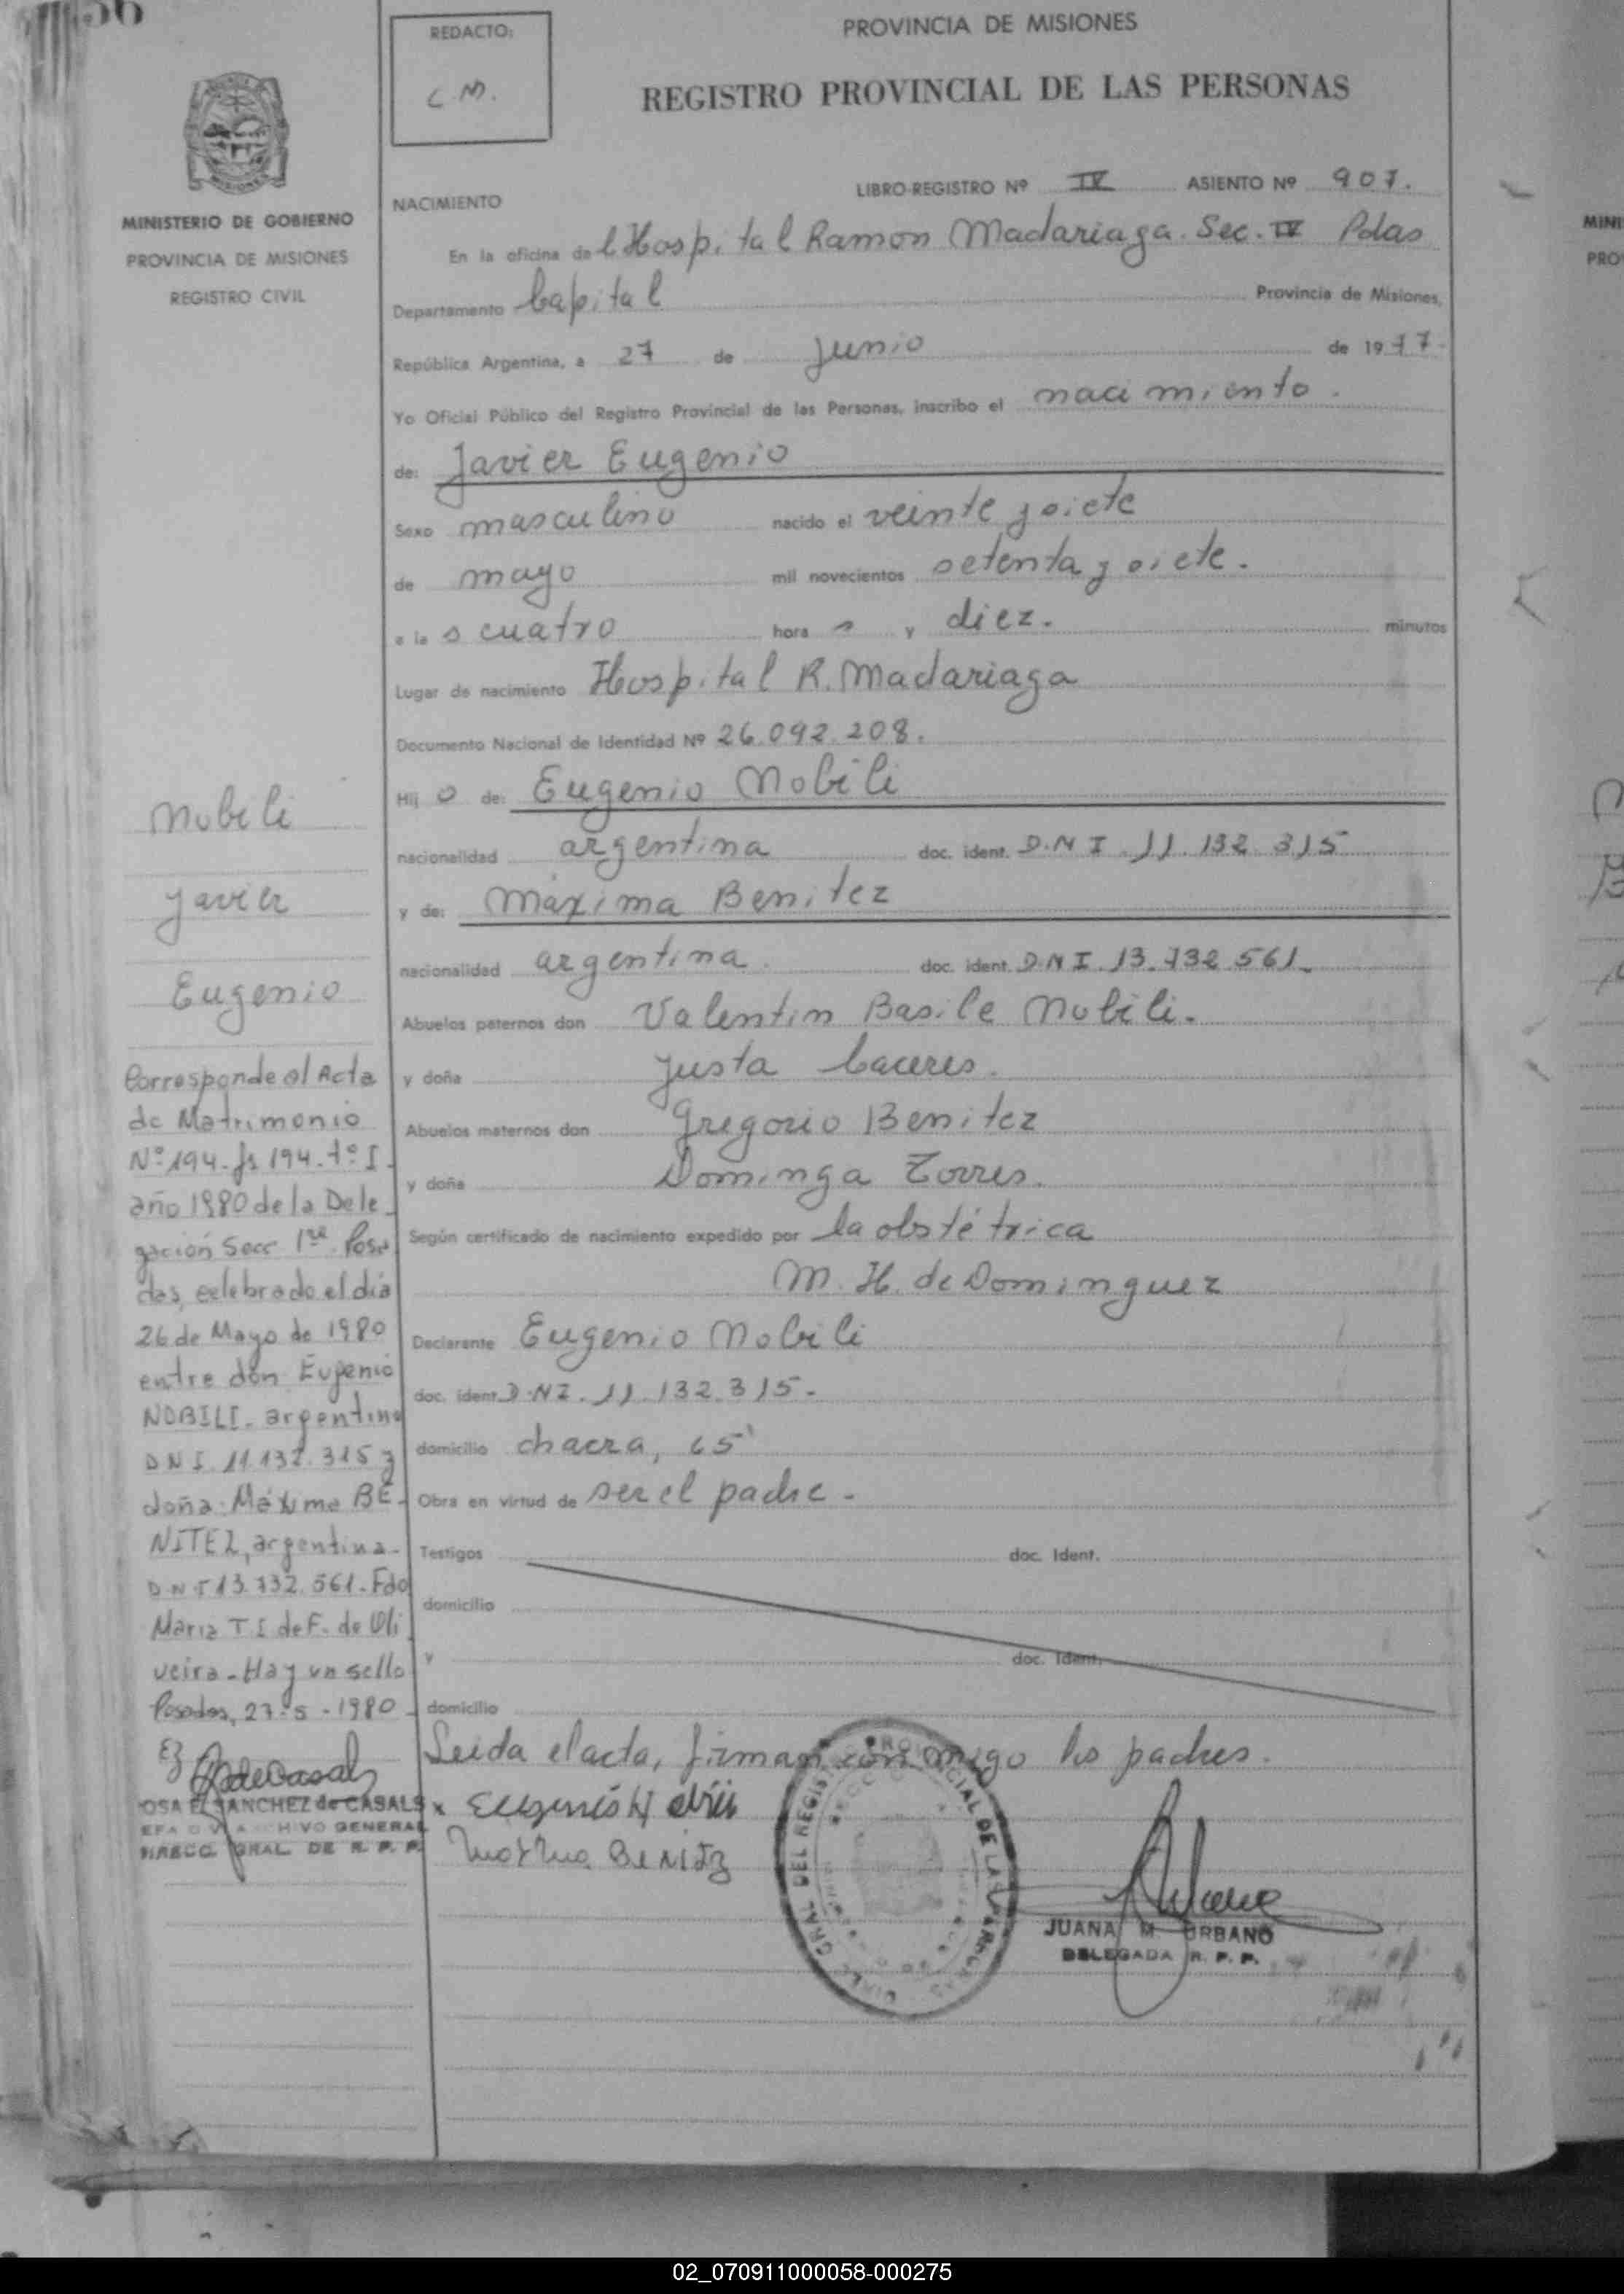 REDACTO:
C.M.
PROVINCIA DE MISIONES
REGISTRO PROVINCIAL DE LAS PERSONAS
MINISTERIO DE GOBIERNO
PROVINCIA DE MISIONES
REGISTRO CIVIL
LIBRO-REGISTRO Nº IV ASIENTO Nº 907.
NACIMIENTO
En la oficina del Hospital Ramon Madariaga. Sec. IV Pdas
Departamento Capital Provincia de Misiones,
República Argentina, a 27 de Junio de 1977-
Yo Oficial Público del Registro Provincial de las Personas, inscribo el nacimiento.
de: Javier Eugenio
Sexo masculino nacido el veinte y siete
de mayo mil novecientos setenta y siete.
a las cuatro horas y diez. minutos
Lugar de nacimiento Hospital R. Madariaga
Documento Nacional de Identidad Nº 26.092.208.
Hijo de: Eugenio Nobili
nacionalidad argentina doc. ident. D.N I. 11.132.315
y de: Máxima Benitez
nacionalidad argentina. doc. ident. D.N I. 13.732.561.
Abuelos paternos don Valentin Basile Nobili.
y doña Justa Caceres.
Abuelos maternos don Gregorio Benitez
y doña Dominga Torres.
Según certificado de nacimiento expedido por la obstétrica
M. H. de Dominguez
Declarante Eugenio Nobili
doc. ident. D.N I. 11.132.315.
domicilio chacra, 65
Obra en virtud de ser el padre.
Testigos doc. Ident.
domicilio
y doc. Ident.
domicilio
Leida el acta, firman conmigo los padres.
Benitez
JUANA M. URBANO
DELEGADA R. P. P.
Nobili
Javier
Eugenio
Corresponde al Acta
de Matrimonio
Nº 194-fs 194-tº I.
año 1980 de la Dele
gación Secc 1ra Posa
das, celebrado el día
26 de Mayo de 1980
entre don Eugenio
NOBILI- argentino
D N I 11.132.315 y
doña: Máxima BE-
NITEZ, argentina-
D.N.I 13.732.561-Fdo
Maria T. I de F. de Oli
veira-Hay un sello
Posadas, 27-5-1980
OSA E. SANCHEZ de CASALS
EFA DIV ARCHIVO GENERAL
DIRECC. GRAL. DE R. P. P.
02_070911000058-000275